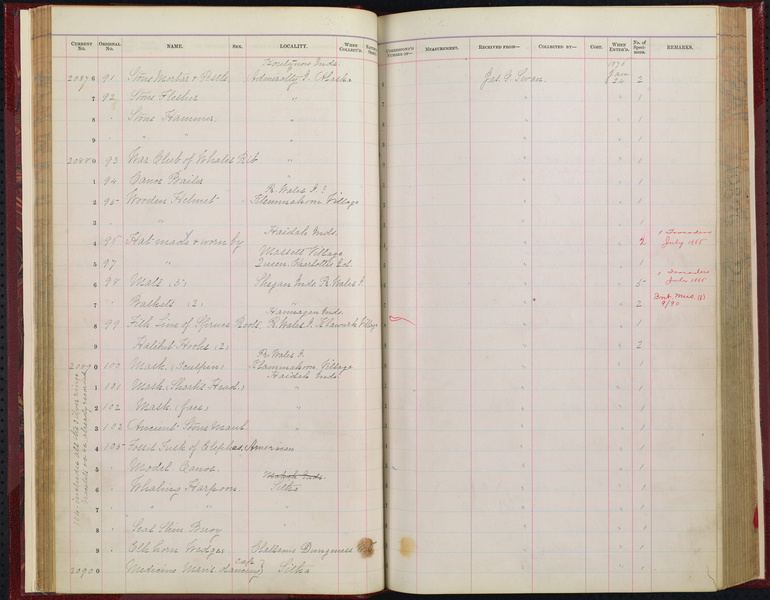 CURRENT No. ORIGINAL No. NAME. SEX. LOCALITY. WHEN COLLECT'D. CORRESPOND'G NUMBER OF— MEASUREMENT. RECEIVED FROM— COLLECTED BY— COST. WHEN ENTER'D. No. of Speci-mens. REMARKS.
20876 91 Stone Mortar & Pestle Inds. Admiralty I. Alaska Jas. G. Swan 1876 Jan 24 2
7 92 Stone Flesher " " " 1
8 " Stone Hammer. " " " 1
9 " " " " " " 1
20880 93 War Club of Whales Rib " " " 1
1 94 Canoe Bailer " " " 1
2 95 Wooden Helmet P. Wales I.? Klemmakoon Village " " 1
3 " " " " 1
4 96 Hat made & worn by Haidah Inds. " " 2 July 1885
5 97 " Massett Village Queen Charlotte Isl. " " 1
6 98 Mats (5) Inds. P. Wales I. " " 5 July 1885
7 " Baskets (2) Inds. " " 2 9/90
8 99 Fish Line of Spruce Roots. P. Wales I. Klawack Village " " 1
9 Halibut Hooks (2) " " 2
20890 100 Mask (Sculpin) Pr. Wales I. Klemmakoon Village Haidah Inds " " 1
1 101 Mask (Sharks Head.) " " " 1
2 102 Mask (face) " " " 1
3 103 Ancient Stone Maul " " " 1
4 105 Fossil Tusk of Elephas Americanus " " 1
5 " Model Canoe. " " 1
6 " Whaling Harpoon. Sitka " " 1
7 " " " " " " 1
8 " Seal Skin Buoy " " " 1
9 " Elk horn Wedges Clallams Dungeness W.T. " " 1
20900 " Medicine Man's dancing cap Sitka " " 1